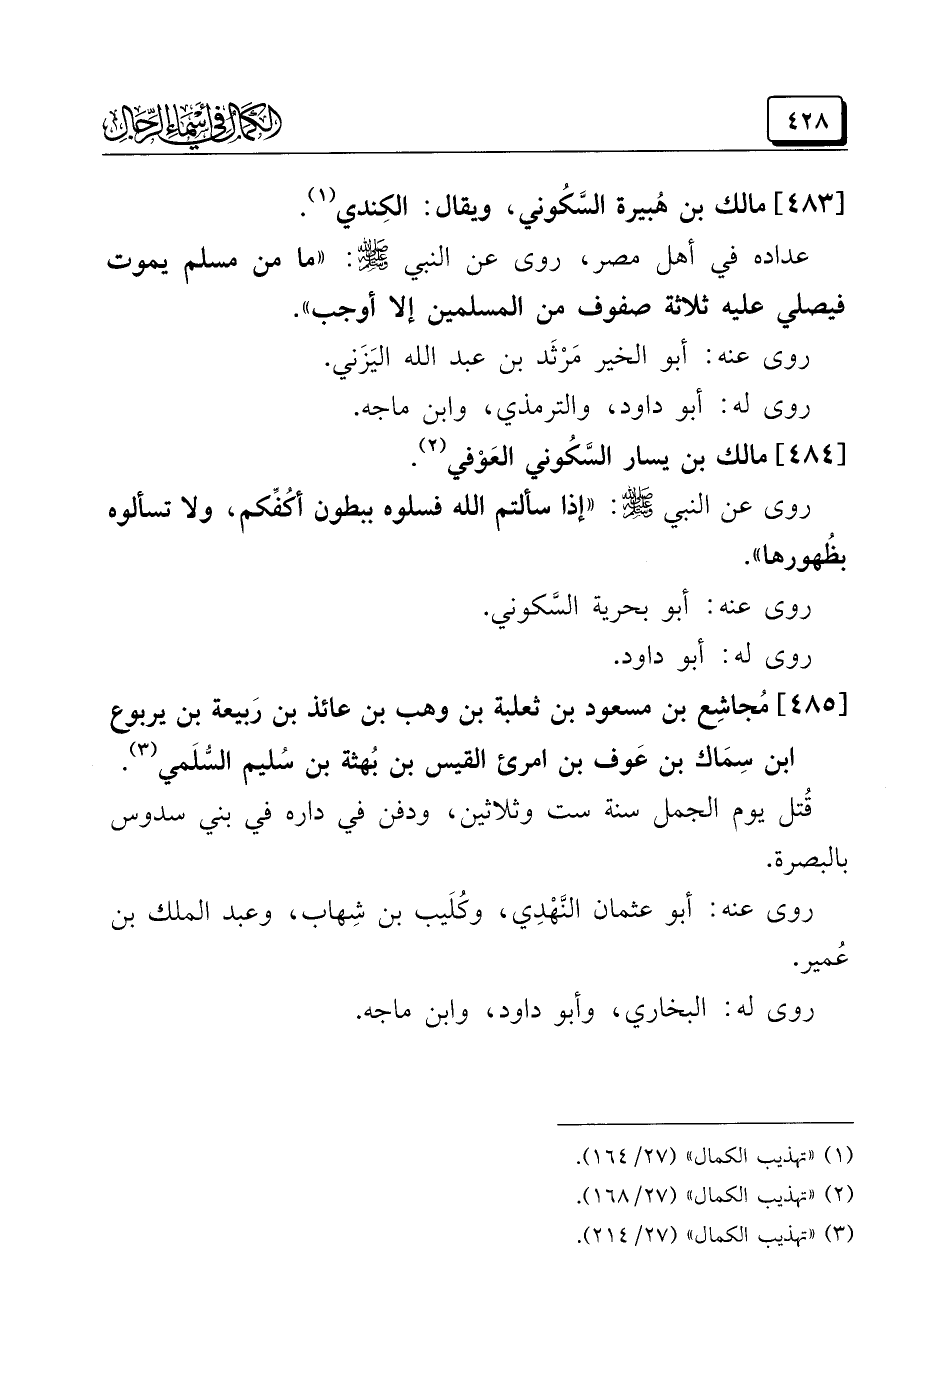 ٤٢٨
الكمال في أسماء الرجال
[٤٨٣] مالك بن هُبيرة السَّكُوني، ويقال: الكِندي(١).
عداده في أهل مصر، روى عن النبي ﷺ: «ما من مسلم يموت
فيصلي عليه ثلاثة صفوف من المسلمين إلا أوجب».
روى عنه: أبو الخير مَرْثَد بن عبد الله اليَزَني.
روى له: أبو داود، والترمذي، وابن ماجه.
[٤٨٤] مالك بن يسار السَّكُوني العَوْفي(٢).
روى عن النبي ﷺ: «إذا سألتم الله فسلوه ببطون أكُفِّكم، ولا تسألوه
بظُهورها».
روى عنه: أبو بحرية السَّكوني.
روى له: أبو داود.
[٤٨٥] مُجاشِع بن مسعود بن ثعلبة بن وهب بن عائذ بن رَبيعة بن يربوع
ابن سِمَاك بن عَوف بن امرئ القيس بن بُهثة بن سُليم السُّلَمي(٣).
قُتل يوم الجمل سنة ست وثلاثين، ودفن في داره في بني سدوس
بالبصرة.
روى عنه: أبو عثمان النَّهْدِي، وكُلَيب بن شِهاب، وعبد الملك بن
عُمير.
روى له: البخاري، وأبو داود، وابن ماجه.
(١) «تهذيب الكمال» (٢٧/ ١٦٤).
(٢) «تهذيب الكمال» (٢٧/ ١٦٨).
(٣) «تهذيب الكمال» (٢٧/ ٢١٤).